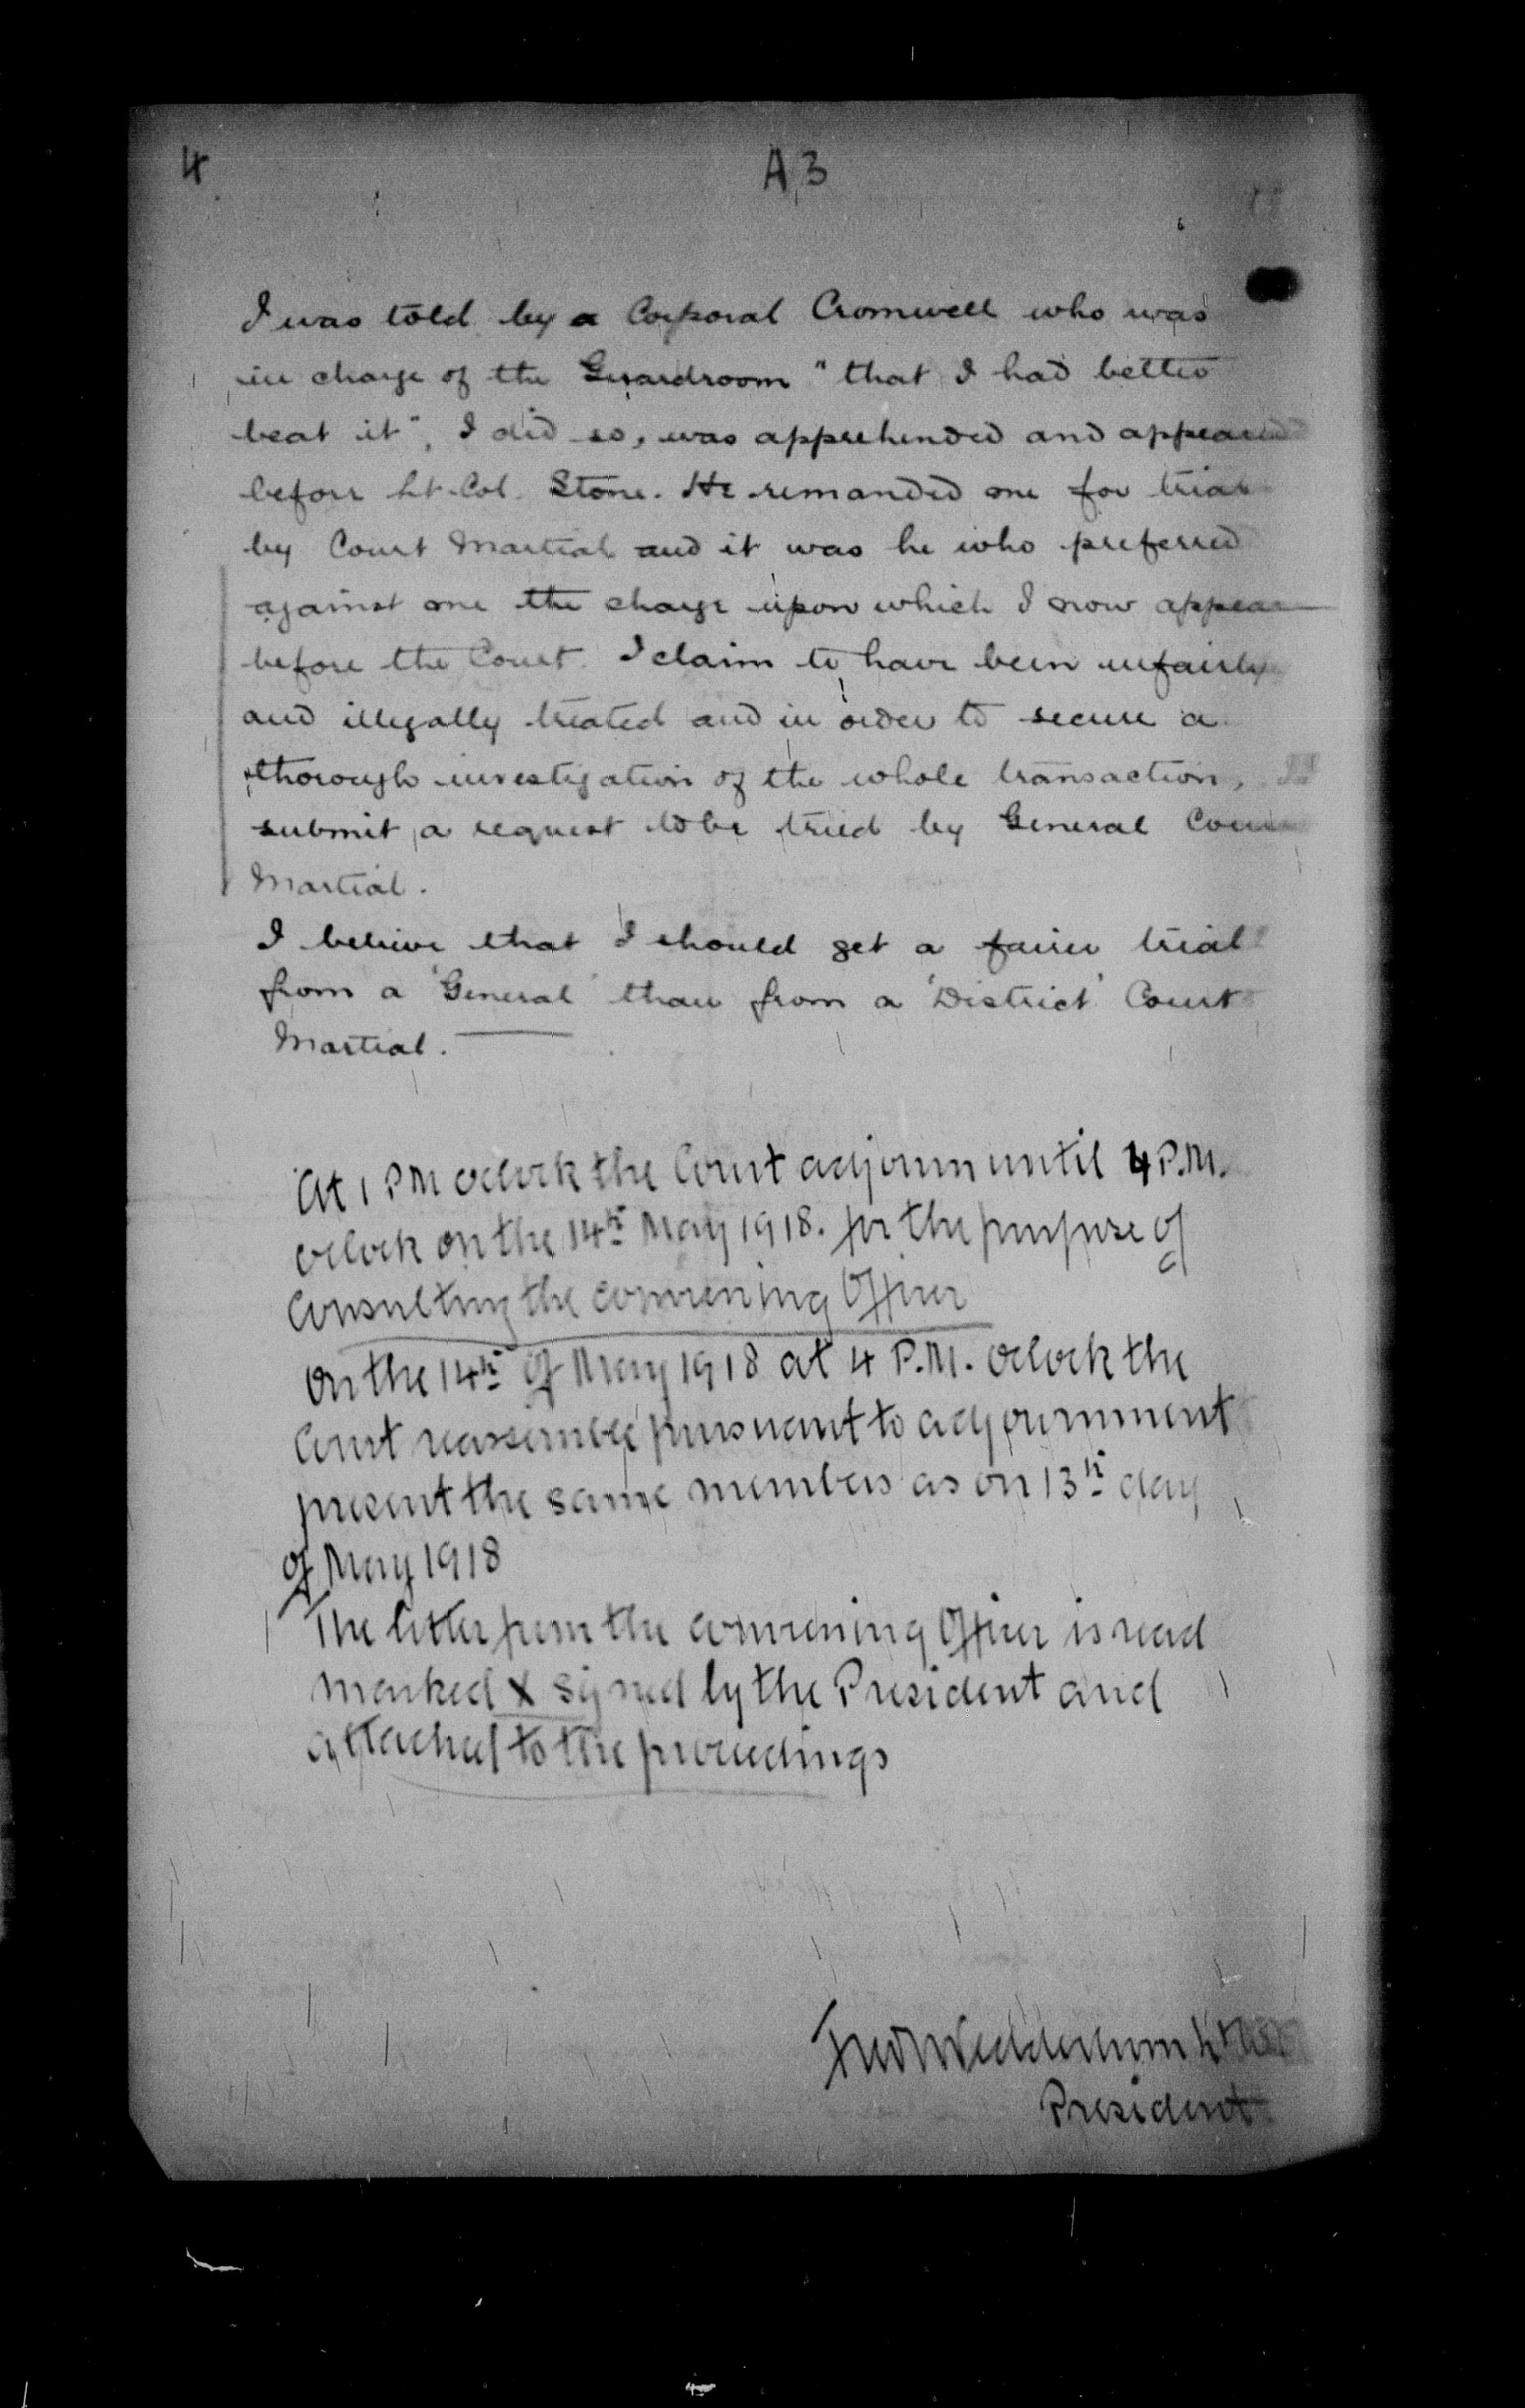 4
A 3
I was told by a Corporal Cromwell who was
in charge of the Guardroom "that I had better
beat it", I did so, was apprehended and appeared
before Lt. Col. Stone. He remanded me for trial
by Court Martial and it was he who preferred
against me the charge upon which I now appear
before the Court. I claim to have been unfairly
and illegally treated and in order to secure a
thorough investigation of the whole transaction, I
submit a request to be tried by General Court
Martial.
I believe that I should get a fairer trial
from a 'General' than from a 'District' Court
Martial.
At 1 PM oclock the Court adjourn until 4 P.M.
oclock on the 14th May 1918. for the purpose of
Consulting the convening Officer
On the 14th of May 1918 at 4 P.M. oclock the
Court reassemble pursuant to adjournment
present the same members as on 13th day
of May 1918
The letter from the convening Officer is read
marked X signed by the President and
attached to the proceedings
Wedderburn Lt
President